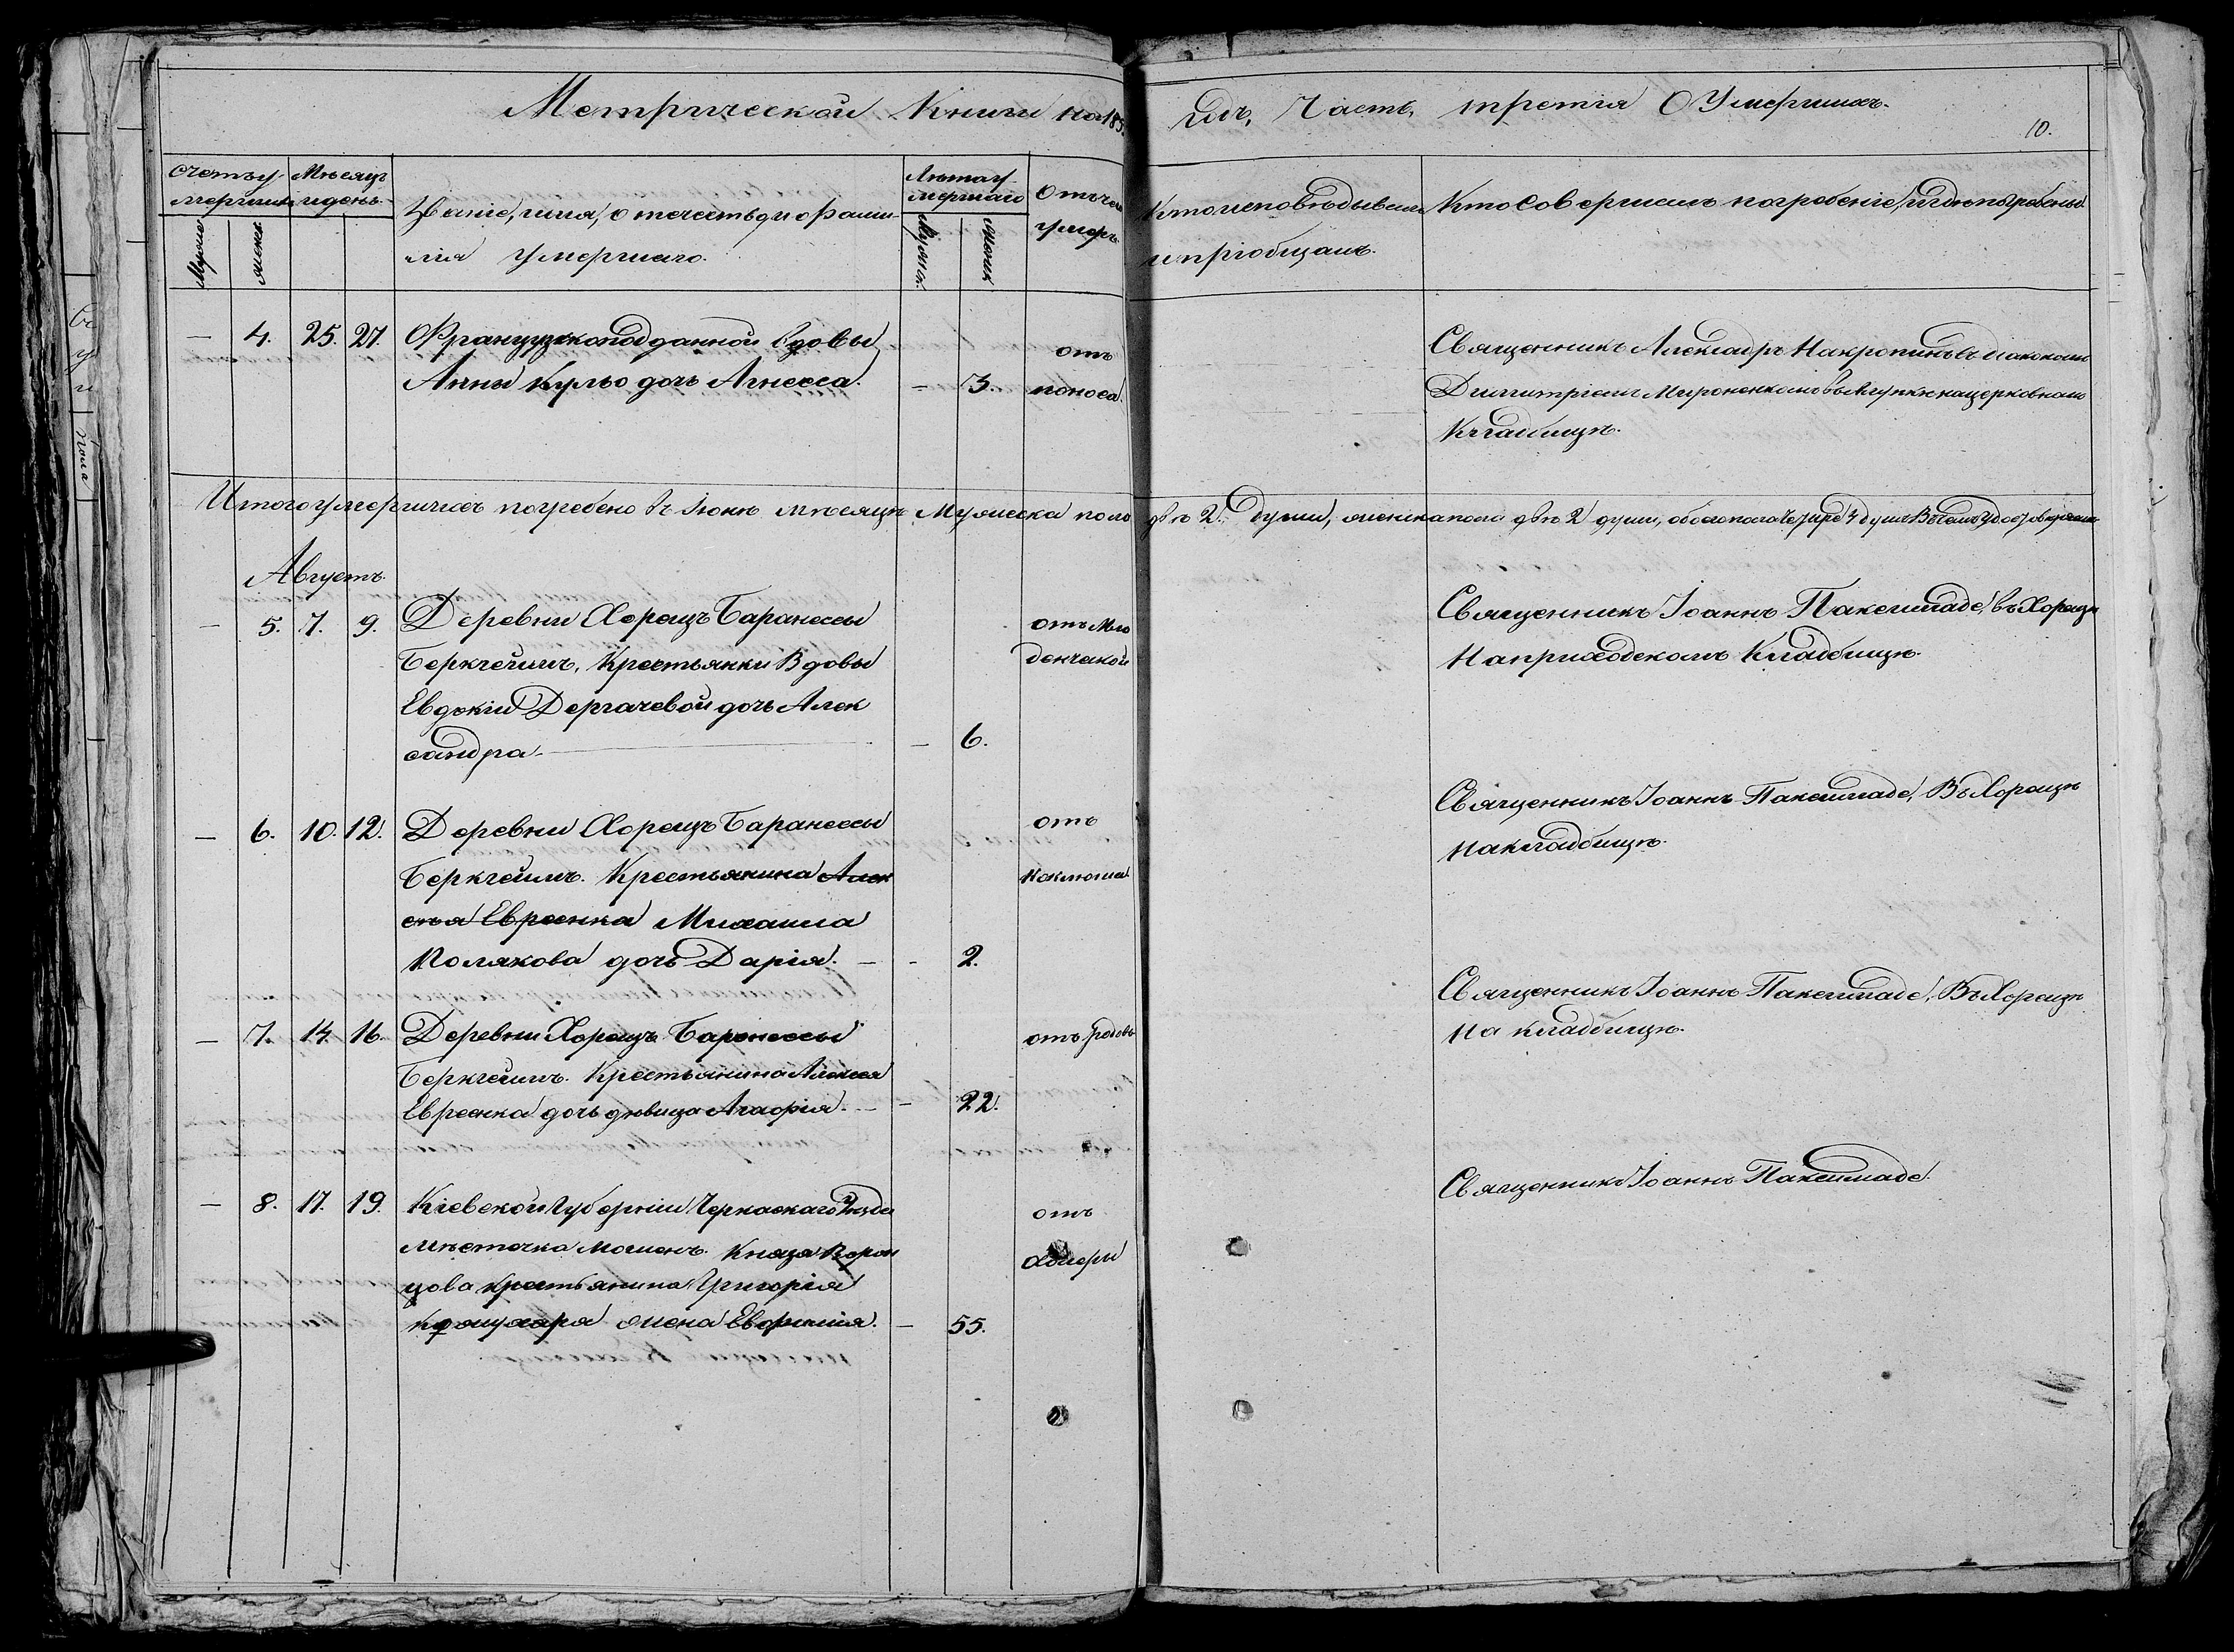 Метрической Книги на 185
годъ, Часть, третія О Умершихъ.
10.
Счетъ у-
мершихъ
Мѣсяцъ
и день.
Званіе, имя, отечество, и фами-
лія Умершаго.
Лѣта у-
мершаго
Отъ чего
умеръ.
Кто исповѣдывалъ
и пріобщалъ.
Кто Совершилъ погребеніе, и гдѣ погребены.
Мужеск
женск
Мужеск.
женск
— 4. 25. 27. Французскоподданной вдовы
Анны Кульо дочь Агнесса. — 3.
отъ
поноса.
Священникъ Александръ Накропинъ съ діакономъ
Димитріемъ Мироненкомъ въ Алупкѣ на церковномъ
Кладбищѣ.
Итого умершихъ погребено въ Іюнѣ мѣсяцѣ Мужеска пола двѣ 2. души, женска пола двѣ 2 души, обоего пола Четыре 4 душъ В чемъ
Августъ.
— 5. 7. 9. Деревни Хореизъ Баранессы
Беркгеимъ, Крестьянки Вдовы
Евдокіи Дергачевой дочь Алек
сандра — — 6.
отъ Мла
денческой
Священникъ Іоаннъ Паксимаде, въ Хореизѣ
На приходскомъ Кладбищѣ.
— 6. 10. 12. Деревни Хореизъ Баранессы
Беркгеимъ. Крестьянина Алек
сѣя Евреенка Михаила
Полякова дочь Дарія. — — 2.
отъ
Коклюша
Священникъ Іоаннъ Паксимаде, Въ Хореизѣ
на кладбищѣ.
— 7. 14. 16. Деревни Хореизъ Баронессы
Беркгеимъ. Крестьянина Алексея
Евреенка дочь дѣвица Агафія. — — 22.
отъ родовъ
Священникъ Іоаннъ Паксимаде, Въ Хореизѣ
На кладбищѣ.
— 8. 17. 19. Кіевской Губерніи Черкаскаго Уѣзда
мѣстечка Мошенъ. Князя Ворон
цова крестьянина Григорія
жена Евфимія. — 55.
отъ
холеры
Священникъ Іоаннъ Паксимаде.